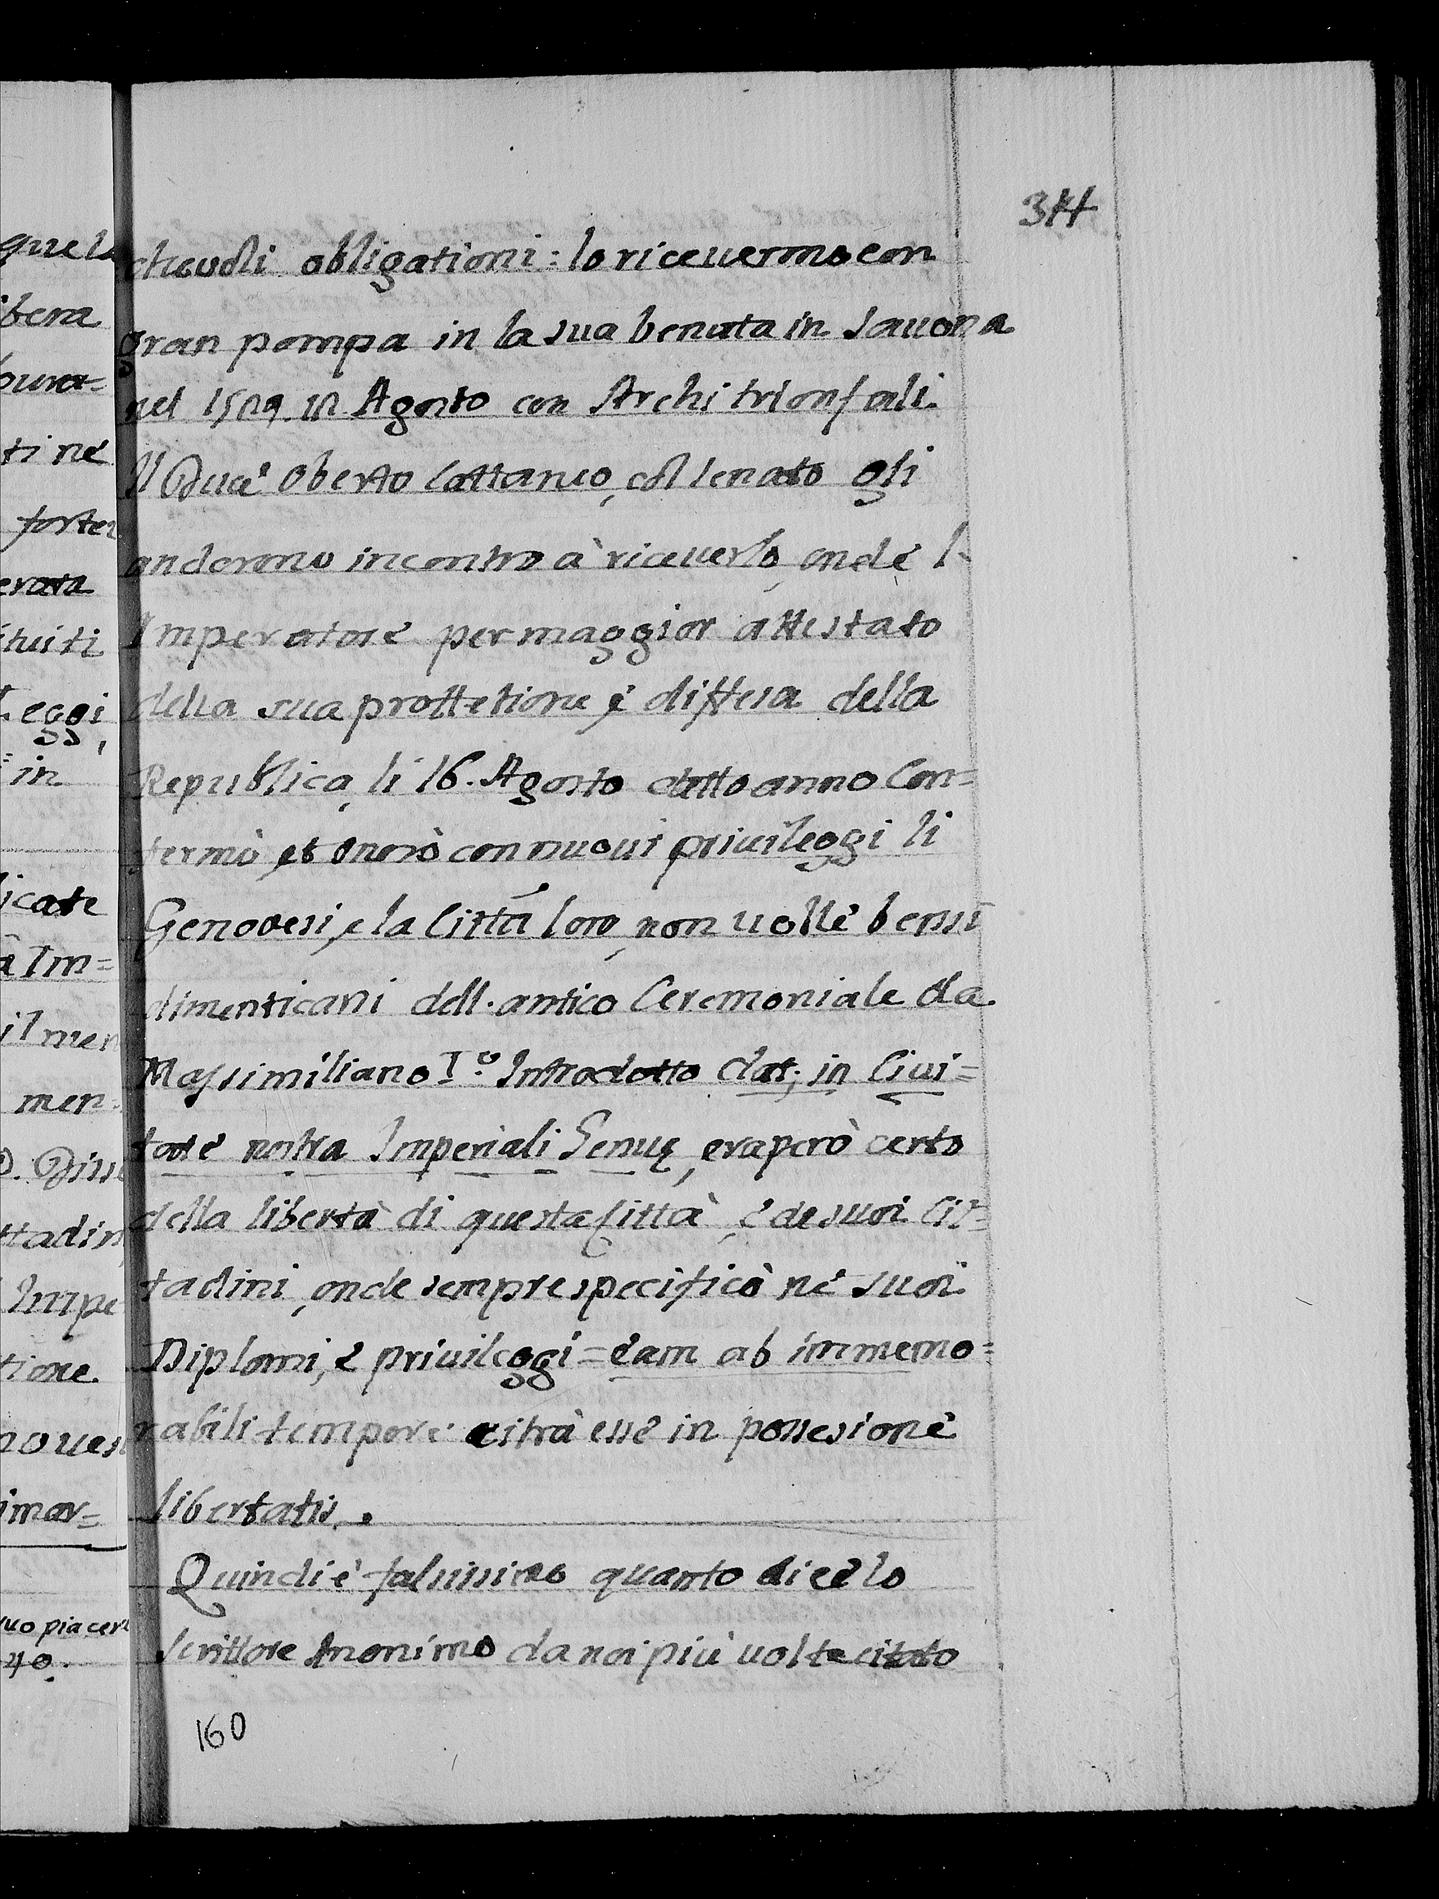 344
obligationi: lo riceuerono con
gran pompa in la sua benuta in Sauona
nel 1529 in Agosto con Archi trionfali.
Il Duce Oberto Cattaneo, col Senato gli
andorono incontro à riceuerlo, onde l
Imperatore per maggior attestato
della sua prottetione è diffesa della
Republica, li 16. Agosto detto anno Con=
fermò, et onorò con nuoui priuileggi li
Genovesi, e la Città loro, non uolle bensì
dimenticarsi dell. antico Ceremoniale da
Massimiliano I.º Introdotto dat; in Ciui=
tate nostra Imperiali Genuę, era però certo
della libertà di questa Città, è de suoi Cit=
tadini, onde sempre specificò nè suoi
Diplomi, è priuileggi = eam ab immemo=
rabili tempore citrà esse in possesione
libertatis.
Quindi è falsissimo quanto dice lo
scrittore Anonimo da noi più uolte citato
160
quela
ibera
ti nè
fortez
erata
tuiti
Leggi,
in
licate
à Im=
il men
men
ttadin
Impe
tione
noues
imar=
suo piacere
40.